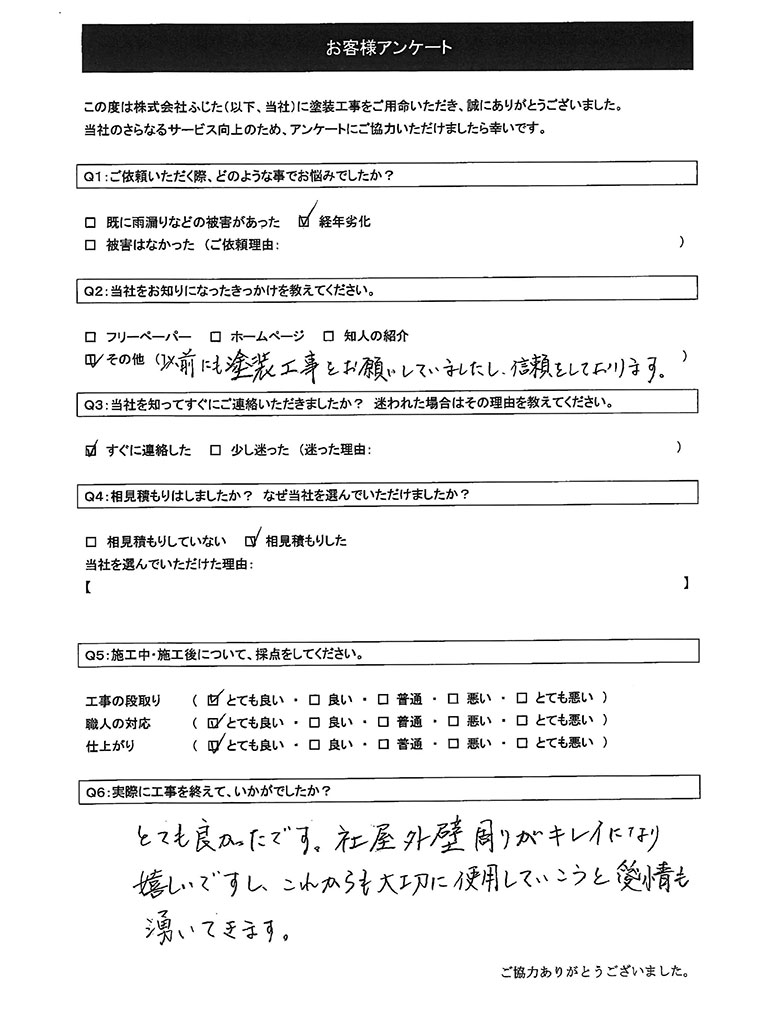 お客様アンケート
この度は株式会社ふじた(以下、当社)に塗装工事をご用命いただき、誠にありがとうございました。
当社のさらなるサービス向上のため、アンケートにご協力いただけましたら幸いです。
Q1:ご依頼いただく際、どのような事でお悩みでしたか?
□ 既に雨漏りなどの被害があった ☑ 経年劣化
□ 被害はなかった (ご依頼理由: )
Q2:当社をお知りになったきっかけを教えてください。
□ フリーペーパー □ ホームページ □ 知人の紹介
☑ その他 (以前にも塗装工事をお願いしていましたし、信頼をしております。)
Q3:当社を知ってすぐにご連絡いただきましたか? 迷われた場合はその理由を教えてください。
☑ すぐに連絡した □ 少し迷った (迷った理由: )
Q4:相見積もりはしましたか? なぜ当社を選んでいただけましたか?
□ 相見積もりしていない ☑ 相見積もりした
当社を選んでいただけた理由:
【 】
Q5:施工中・施工後について、採点をしてください。
工事の段取り ( ☑ とても良い ・ □ 良い ・ □ 普通 ・ □ 悪い ・ □ とても悪い )
職人の対応 ( ☑ とても良い ・ □ 良い ・ □ 普通 ・ □ 悪い ・ □ とても悪い )
仕上がり ( ☑ とても良い ・ □ 良い ・ □ 普通 ・ □ 悪い ・ □ とても悪い )
Q6:実際に工事を終えて、いかがでしたか?
とても良かったです。社屋外壁周りがキレイになり
嬉しいですし、これからも大切に使用していこうと愛情も
湧いてきます。
ご協力ありがとうございました。